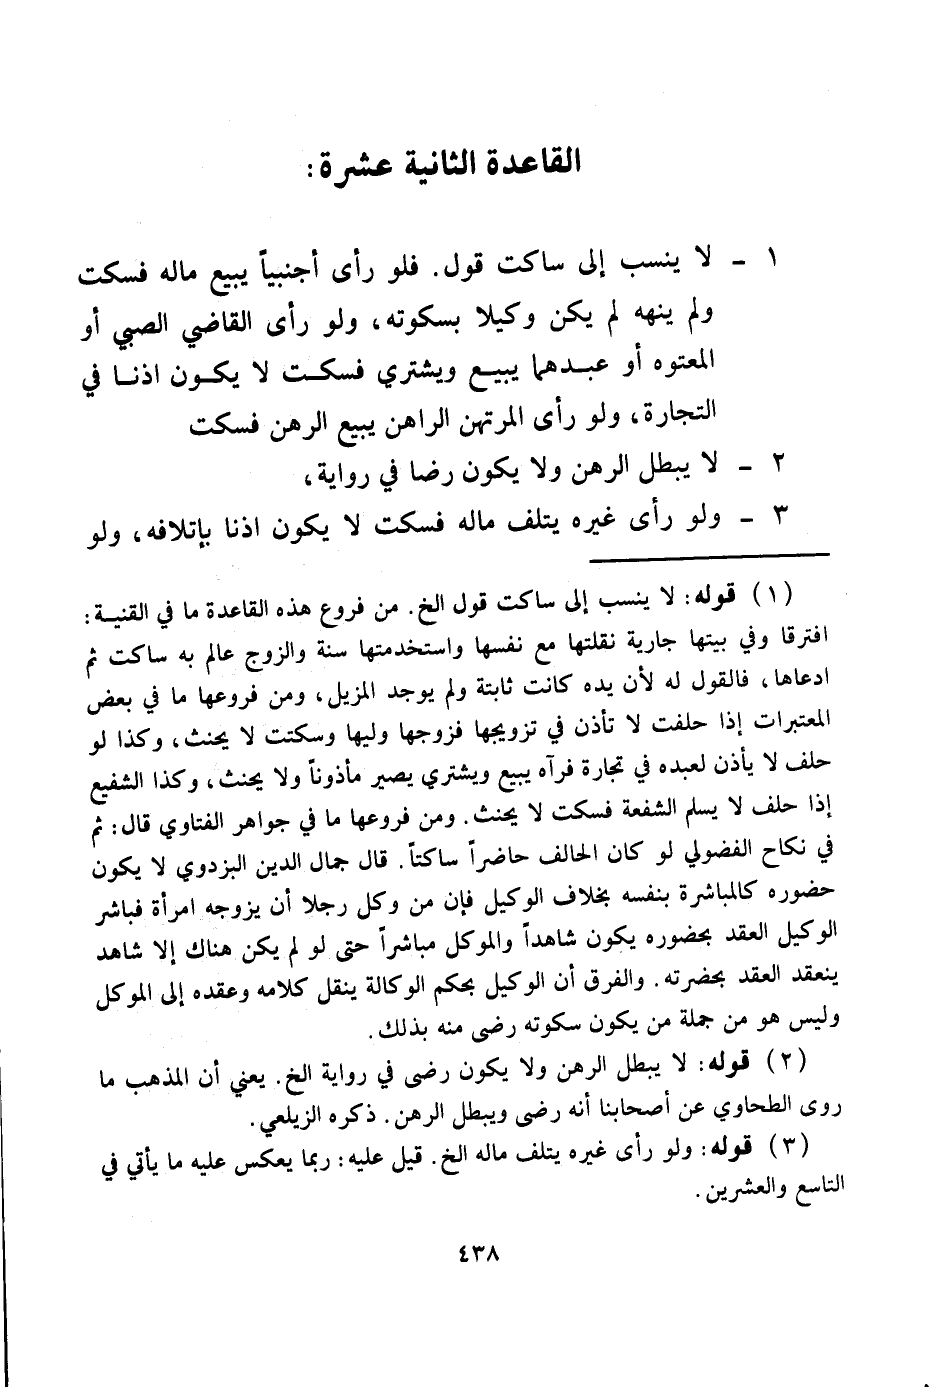 القاعدة الثانية عشرة:
١ - لا ينسب إلى ساكت قول. فلو رأى أجنبياً يبيع ماله فسكت
ولم ينهه لم يكن وكيلا بسكوته، ولو رأى القاضي الصبي أو
المعتوه أو عبدهما يبيع ويشتري فسكت لا يكون اذنا في
التجارة، ولو رأى المرتهن الراهن يبيع الرهن فسكت
٢ - لا يبطل الرهن ولا يكون رضا في رواية،
٣ - ولو رأى غيره يتلف ماله فسكت لا يكون اذنا بإتلافه، ولو
(١) قوله: لا ينسب إلى ساكت قول الخ. من فروع هذه القاعدة ما في القنية:
افترقا وفي بيتها جارية نقلتها مع نفسها واستخدمتها سنة والزوج عالم به ساكت ثم
ادعاها، فالقول له لأن يده كانت ثابتة ولم يوجد المزيل، ومن فروعها ما في بعض
المعتبرات إذا حلفت لا تأذن في تزويجها فزوجها وليها وسكتت لا يحنث، وكذا لو
حلف لا يأذن لعبده في تجارة فرآه يبيع ويشتري يصير مأذوناً ولا يحنث، وكذا الشفيع
إذا حلف لا يسلم الشفعة فسكت لا يحنث. ومن فروعها ما في جواهر الفتاوي قال: ثم
في نكاح الفضولي لو كان الحالف حاضراً ساكتاً. قال جمال الدين البزدوي لا يكون
حضوره كالمباشرة بنفسه بخلاف الوكيل فإن من وكل رجلا أن يزوجه امرأة فباشر
الوكيل العقد بحضوره يكون شاهداً والموكل مباشراً حتى لو لم يكن هناك إلا شاهد
ينعقد العقد بحضرته. والفرق أن الوكيل بحكم الوكالة ينقل كلامه وعقده إلى الموكل
وليس هو من جملة من يكون سكوته رضى منه بذلك.
(٢) قوله: لا يبطل الرهن ولا يكون رضى في رواية الخ. يعني أن المذهب ما
روى الطحاوي عن أصحابنا أنه رضى ويبطل الرهن. ذكره الزيلعي.
(٣) قوله: ولو رأى غيره يتلف ماله الخ. قيل عليه: ربما يعكس عليه ما يأتي في
التاسع والعشرين.
٤٣٨